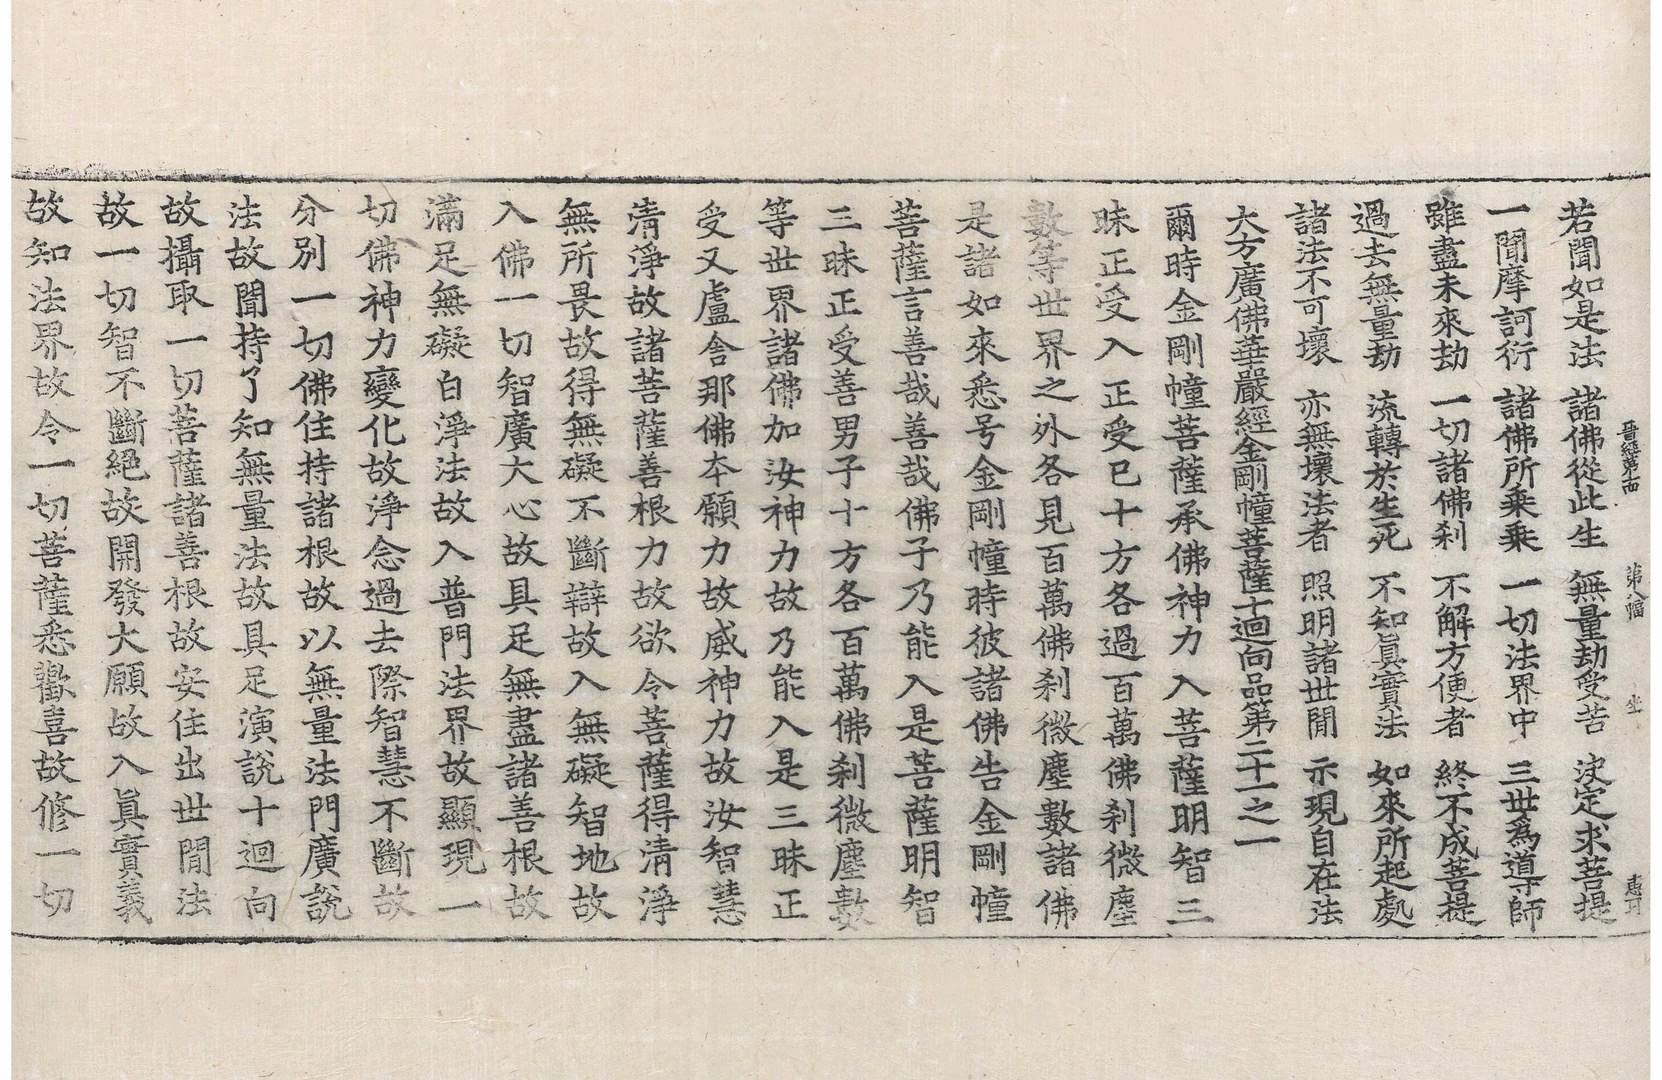 晉經第十四 第八幅 坐 惠可
若聞如是法 諸佛從此生 無量劫受苦 決定求菩提
一聞摩訶衍 諸佛所乘乘 一切法界中 三世爲導師
雖盡未來劫 一切諸佛刹 不解方便者 終不成菩提
過去無量劫 流轉於生死 不知眞實法 如來所起處
諸法不可壞 亦無壞法者 照明諸世間 示現自在法
大方廣佛華嚴經金剛幢菩薩十迴向品第二十一之一
爾時金剛幢菩薩承佛神力入菩薩明智三
昧正受入正受已十方各過百萬佛刹微塵
數等世界之外各見百萬佛刹微塵數諸佛
是諸如來悉号金剛幢時彼諸佛告金剛幢
菩薩言善哉善哉佛子乃能入是菩薩明智
三昧正受善男子十方各百萬佛刹微塵數
等世界諸佛加汝神力故乃能入是三昧正
受又盧舍那佛本願力故威神力故汝智慧
清淨故諸菩薩善根力故欲令菩薩得清淨
無所畏故得無礙不斷辯故入無礙智地故
入佛一切智廣大心故具足無盡諸善根故
滿足無礙白淨法故入普門法界故顯現一
切佛神力變化故淨念過去際智慧不斷故
分別一切佛住持諸根故以無量法門廣說
法故聞持了知無量法故具足演說十迴向
故攝取一切菩薩諸善根故安住出世間法
故一切智不斷絕故開發大願故入眞實義
故知法界故令一切菩薩悉歡喜故修一切